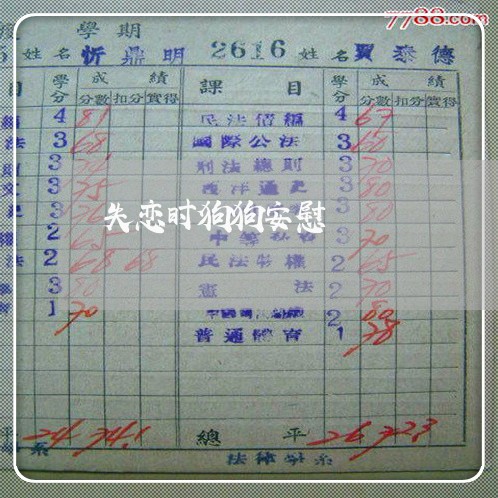 7788.com
學期
姓名 忻鼎明 2616 姓名 賈泰德
目 學分 成績 課目 學分 成績
分數 扣分 實得 分數 扣分 實得
4 81 民法債編 4 67
法 3 68 國際公法 3 60
3 刑法總則 3 70
文 3 75 西洋通史 3 80
3 3 80
失恋时狗狗安慰
2 3 70
法 2 68 68 民法物權 2 65
3 80 憲法 2 70
育 1 70 2 80
普通體育 1 78
平 24 74.1 總平 26 72.3
系 法律學系